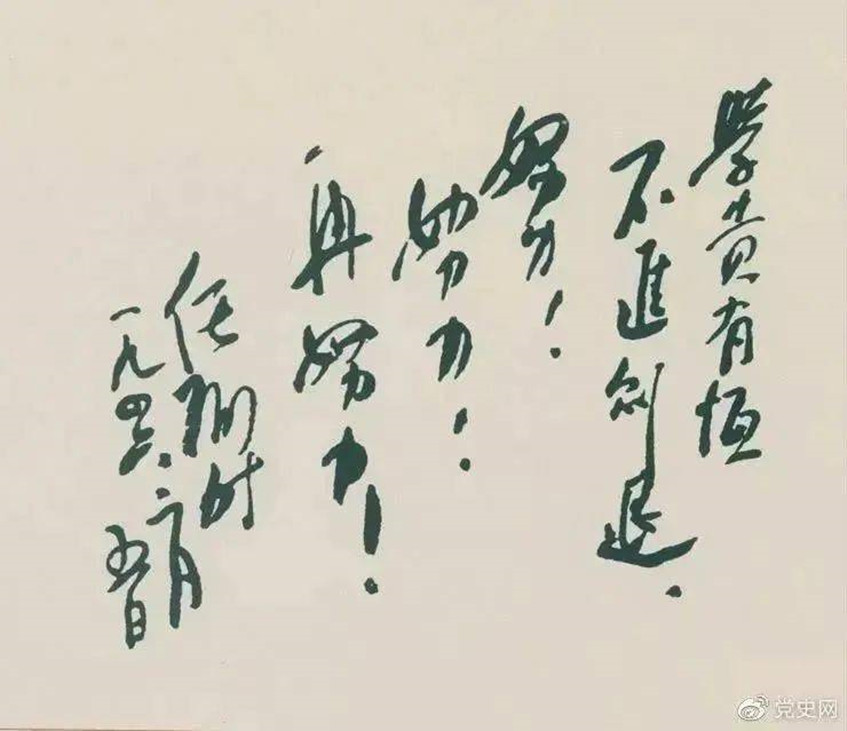 学貴有恒
不進则退.
努力!
努力!
再努力!
任弼时
一九四六.二月
五日
党史网